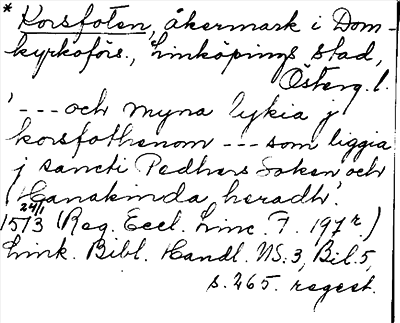 * Korsfoten, åkermark i Dom-
kyrkoförs., Linköpings stad,
Österg. l.
'--- och myna lykia j
korsfothenom --- som liggia
j sancti Pedhers Soken och
Hanakinda heradh'.
24/1
1513 (Reg. Eccl. Linc. F. 197r.)
Link. Bibl. Handl. NS: 3, Bil. 5,
s. 265. regest.